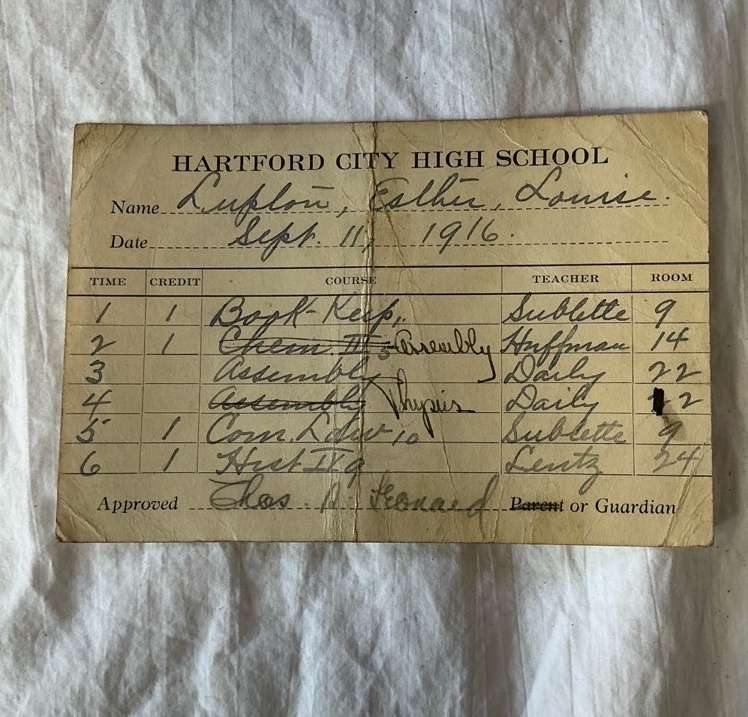 HARTFORD CITY HIGH SCHOOL
Name Lupton, Esther, Louise.
Date Sept. 11, 1916.
TIME CREDIT COURSE TEACHER ROOM
1 1 Book-Keep, Sublette 9
2 1 Chem. III 5 Assembly Huffman 14
3 Assembly Daily 22
4 Assembly Physics Daily 2
5 1 Com. Law 10 Sublette 9
6 1 Hist II 9 Lentz 24
Approved Chas. Leonard Parent or Guardian